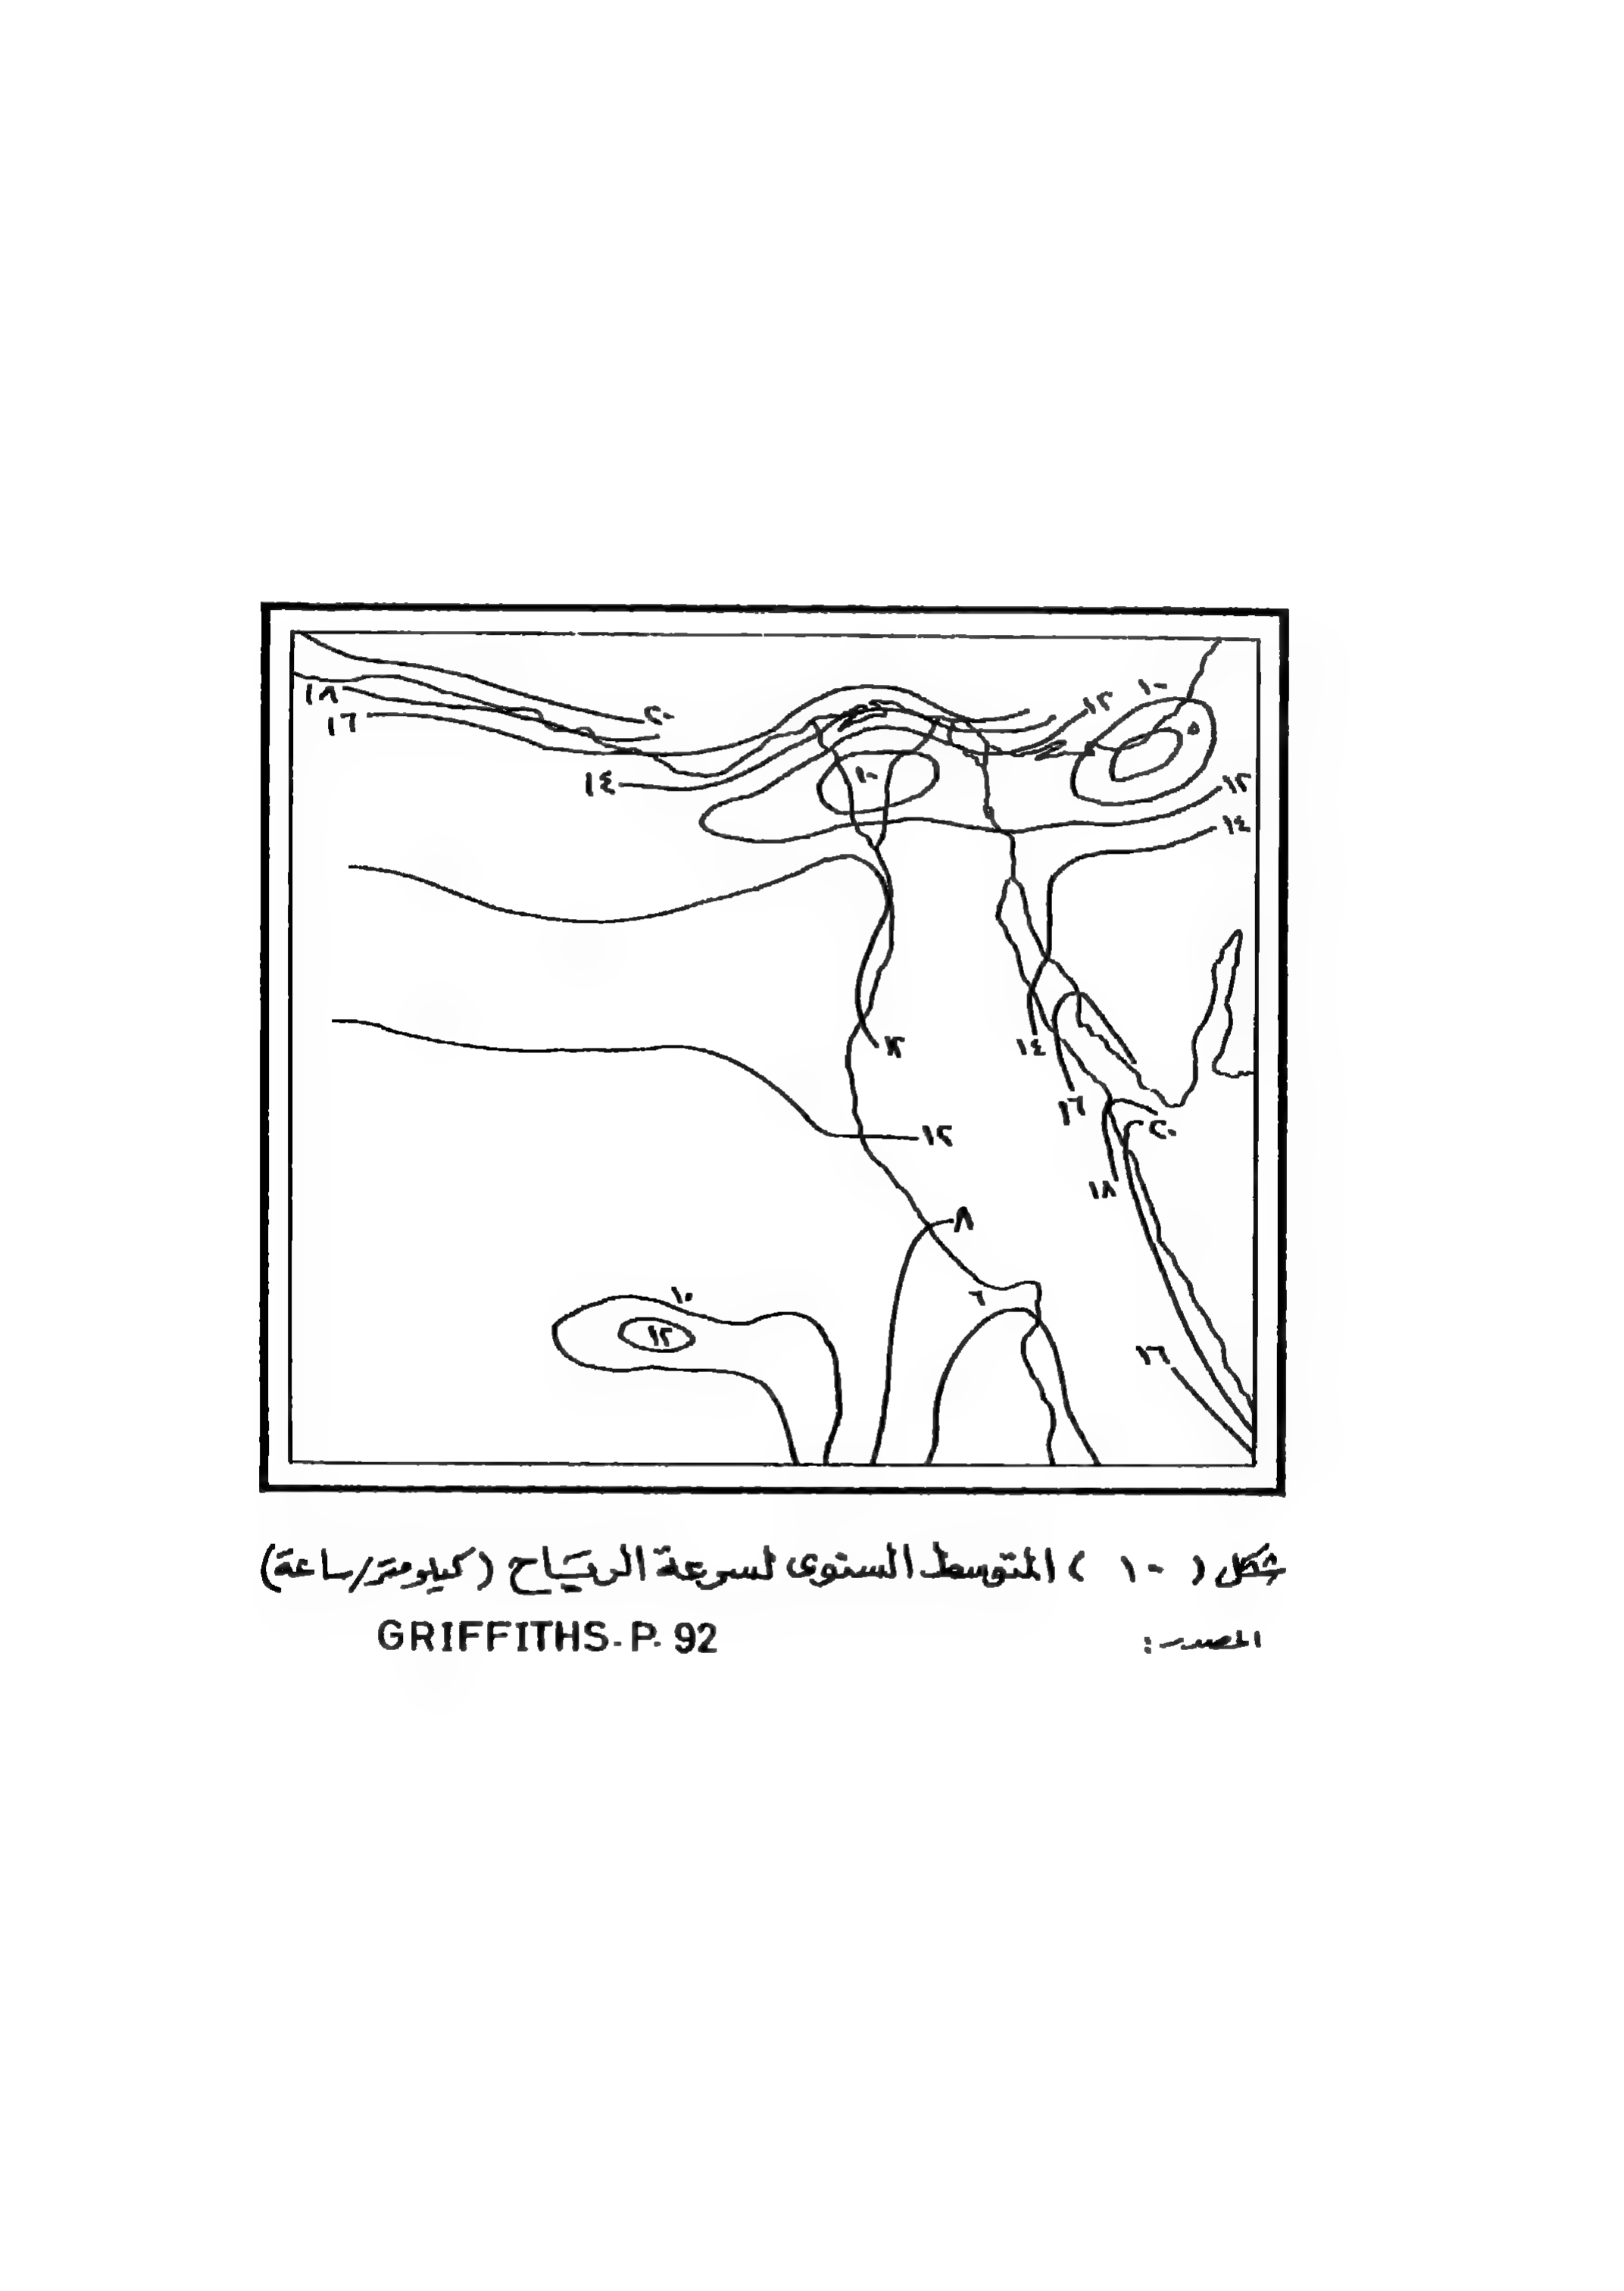 ١٠
١٢
١٨
٢٠
١٦
٥
١٤
١٠
١٢
١٤
١٢
١٤
١٦
٢٠
١٢
١٨
٨
١٠
٦
١٢
١٦
شكل ( ١٠ ) المتوسط السنوى لسرعة الرياح (كيلومتر/ساعة)
المصدر: GRIFFITHS. P. 92